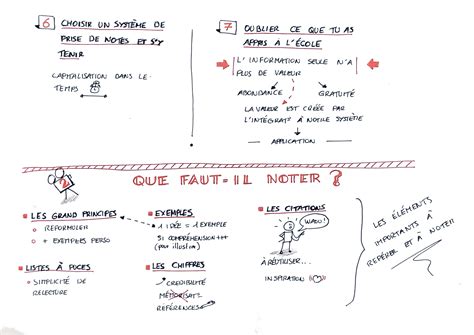 6 CHOISIR UN SYSTÈME DE
PRISE DE NOTES ET S'Y
TENIR
CAPITALISATION DANS LE
TEMPS
7 OUBLIER CE QUE TU AS
APPRIS À L'ÉCOLE
L'INFORMATION SEULE N'A
PLUS DE VALEUR
ABONDANCE GRATUITÉ
LA VALEUR EST CRÉÉE PAR
L'INTÉGRAT° À NOTRE SYSTÈME
APPLICATION
2
QUE FAUT-IL NOTER ?
LES GRAND PRINCIPES
REFORMULER
+ EXEMPLES PERSO
LISTES À PUCES
SIMPLICITÉ DE
RELECTURE
EXEMPLES
1 IDÉE = 1 EX
SI COMPRÉHENSION +++
(pour illusion)
LES CHIFFRES
CREDIBILITÉ
MÉMORISAT°
RÉFÉRENCES
LES CITATIONS
WAOU!
À RÉUTILISER...
INSPIRATION
LES ÉLÉMENTS
IMPORTANTS À
REPÉRER ET À NOTER